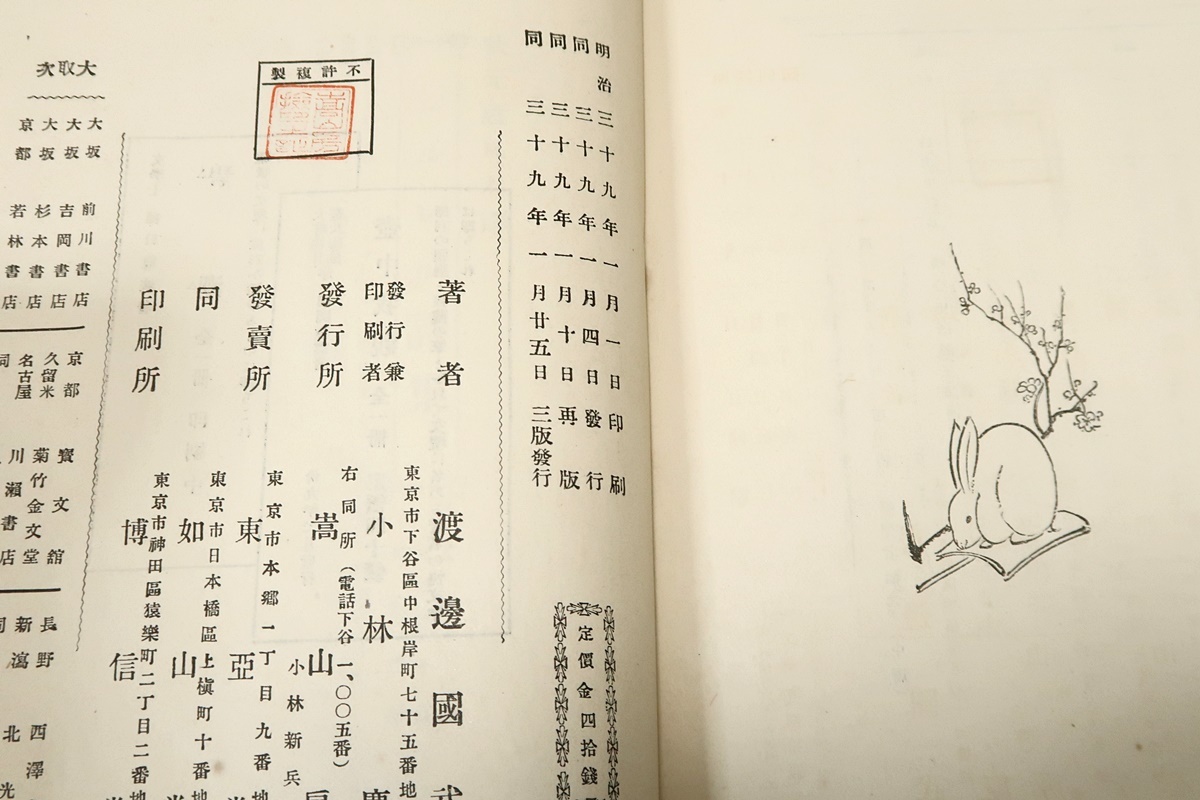 明治三十九年一月一日印刷
同三十九年一月四日發行
同三十九年一月十日再版
同三十九年一月廿五日三版發行
定價金四拾錢
不許複製
著者
渡邊國武
發行兼印刷者
東京市下谷區中根岸町七十五番地
小林慶
發行所
右同所（電話下谷一、〇〇五番）
嵩山
發賣所
東京市本鄉一丁目九番地
小林新兵
東亞
同
東京市日本橋區上槇町十番地
如山
印刷所
東京市神田區猿樂町二丁目二番地
博信
大取次
大坂 前川書店
大坂 吉岡書店
大坂 杉本書店
京都 若林書店
京都
久留米 菊竹金文堂
名古屋 川瀬書店
寶文館
長野 西澤
新瀉 北光